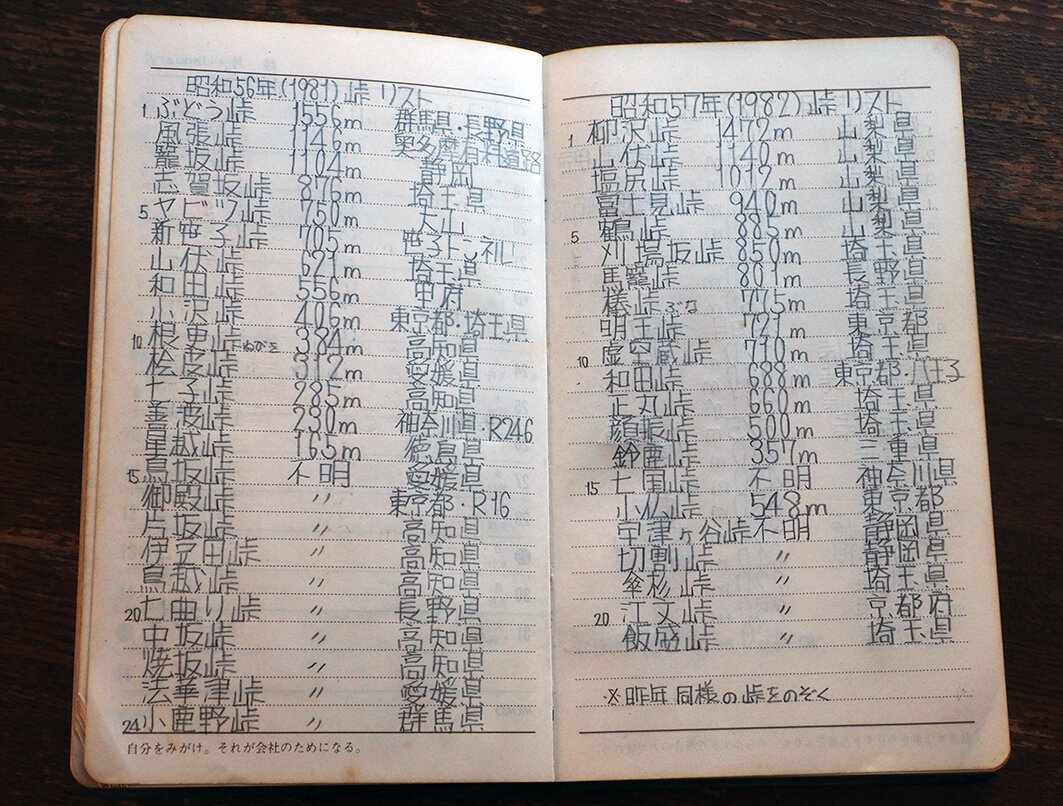 昭和56年(1981) 峠 リスト
1. ぶどう峠 1556m 群馬県・長野県
風張峠 1146m 奥多摩有料道路
籠坂峠 1104m 静岡
志賀坂峠 876m 埼玉県
5. ヤビツ峠 750m 大山
新笹子峠 705m 笹子トンネル
山伏峠 621m 埼玉県
和田峠 556m 甲府
小沢峠 406m 東京都・埼玉県
10 根曳峠ねびき 384m 高知県
桧皮峠 312m 愛媛県
七子峠 285m 高知県
善波峠 230m 神奈川県 R246
星越峠 165m 徳島県
15. 鳥坂峠 不明 愛媛県
御殿峠 〃 東京都・R16
片坂峠 〃 高知県
伊京田峠 〃 高知県
鳥越峠 〃 高知県
20 七曲り峠 〃 長野県
中坂峠 〃 高知県
焼坂峠 〃 高知県
法華津峠 〃 愛媛県
24 小鹿野峠 〃 群馬県
自分をみがけ。それが会社のためになる。
昭和57年(1982) 峠 リスト
1 柳沢峠 1472m 山梨県
山伏峠 1140m 山梨県
塩尻峠 1012m 山梨県
富士見峠 940m 山梨県
5 鶴峠 885m 山梨県
刈場坂峠 850m 埼玉県
馬籠峠 801m 長野県
橅峠 ぶな 775m 埼玉県
明王峠 721m 東京都
10 虚空蔵峠 710m 埼玉県
和田峠 688m 東京都・八王子
正丸峠 660m 埼玉県
顔振峠 500m 埼玉県
鈴鹿峠 357m 三重県
15 七国峠 不明 神奈川県
小仏峠 548m 東京都
宇津ヶ谷峠 不明 静岡県
切割峠 〃 静岡県
傘杉峠 〃 埼玉県
20 江文峠 〃 京都府
飯盛峠 〃 埼玉県
※昨年同様の峠をのぞく